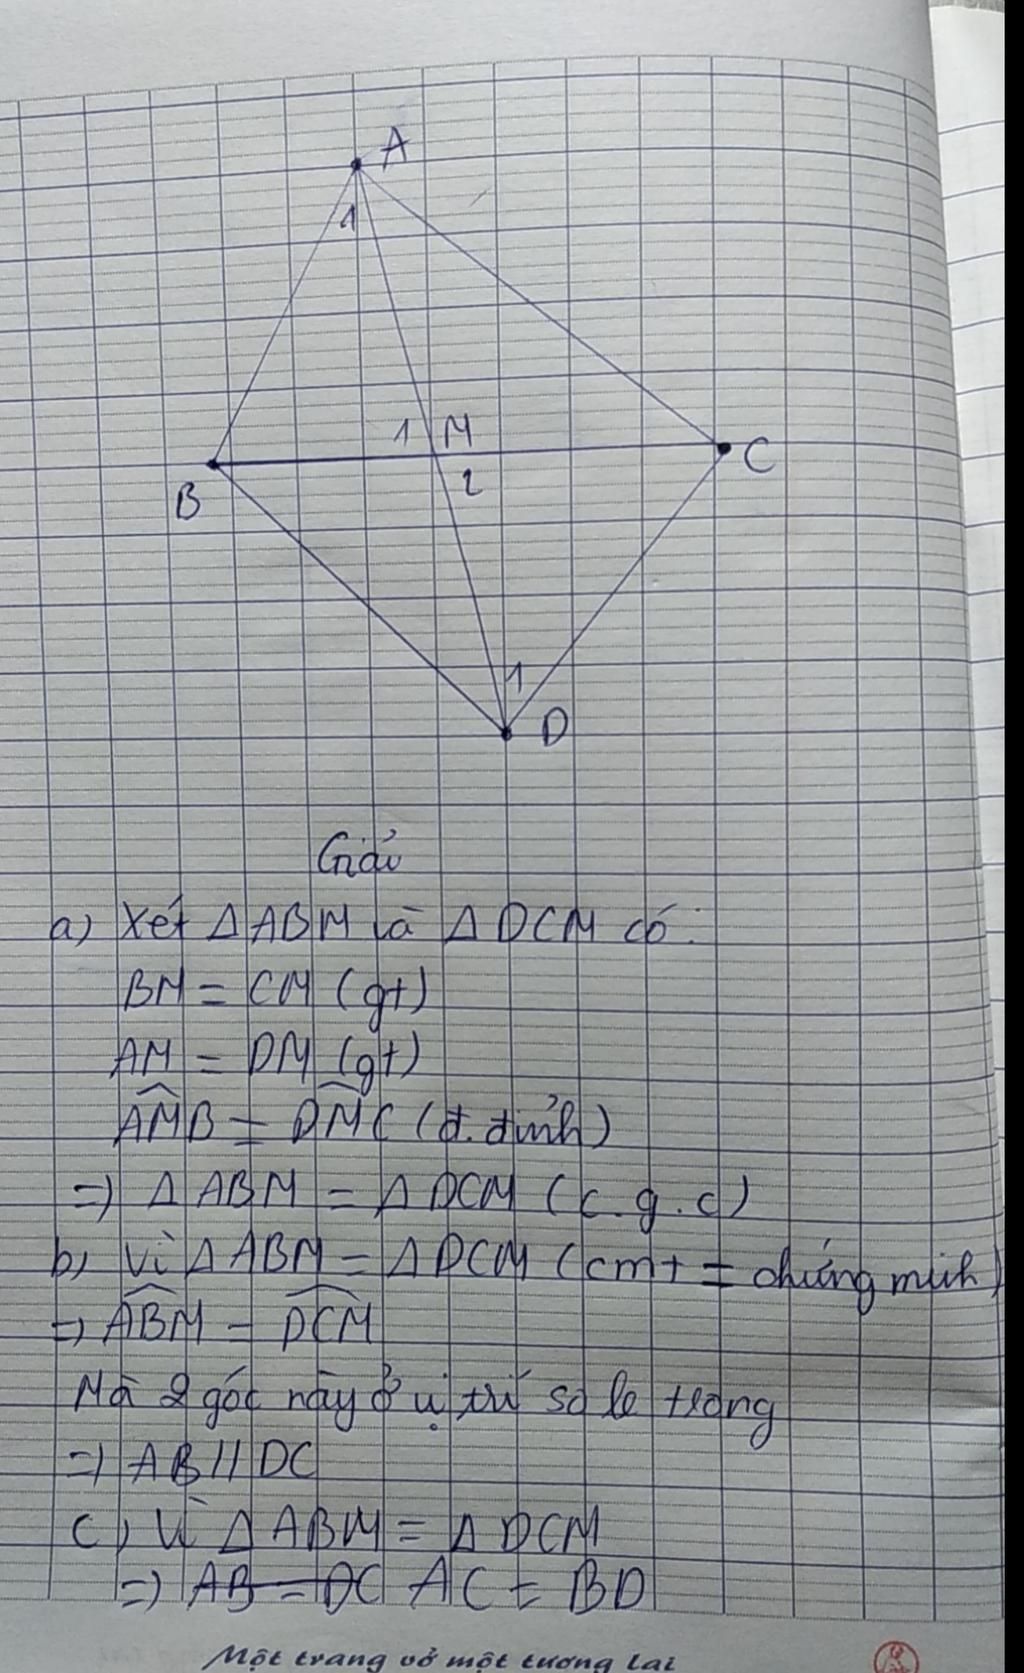 A
1
1 M
C
2
B
1
D
Giải
a) Xét Δ ABM và Δ DCM có:
BM = CM (gt)
AM = DM (gt)
AMB = DMC (đ.đỉnh)
=) Δ ABM = Δ DCM (c.g.c)
b) Vì Δ ABM = Δ DCM (cmt = chứng minh)
=) ABM = DCM
Mà 2 góc này ở vị trí so le trong
=) AB // DC
c) Vì Δ ABM = Δ DCM
=) AB = DC AC = BD
Một trang vở một tương lai